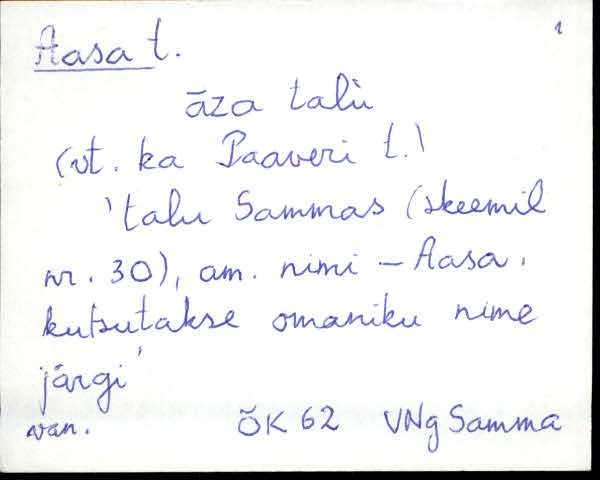 1
Aasa t.
āza talù
(vt. ka Paaveri t.)
'talu Sammas (skeemil
nr. 30), am. nimi – Aasa,
kutsutakse omaniku nime
järgi'
van. ÕK 62 VNg Samma